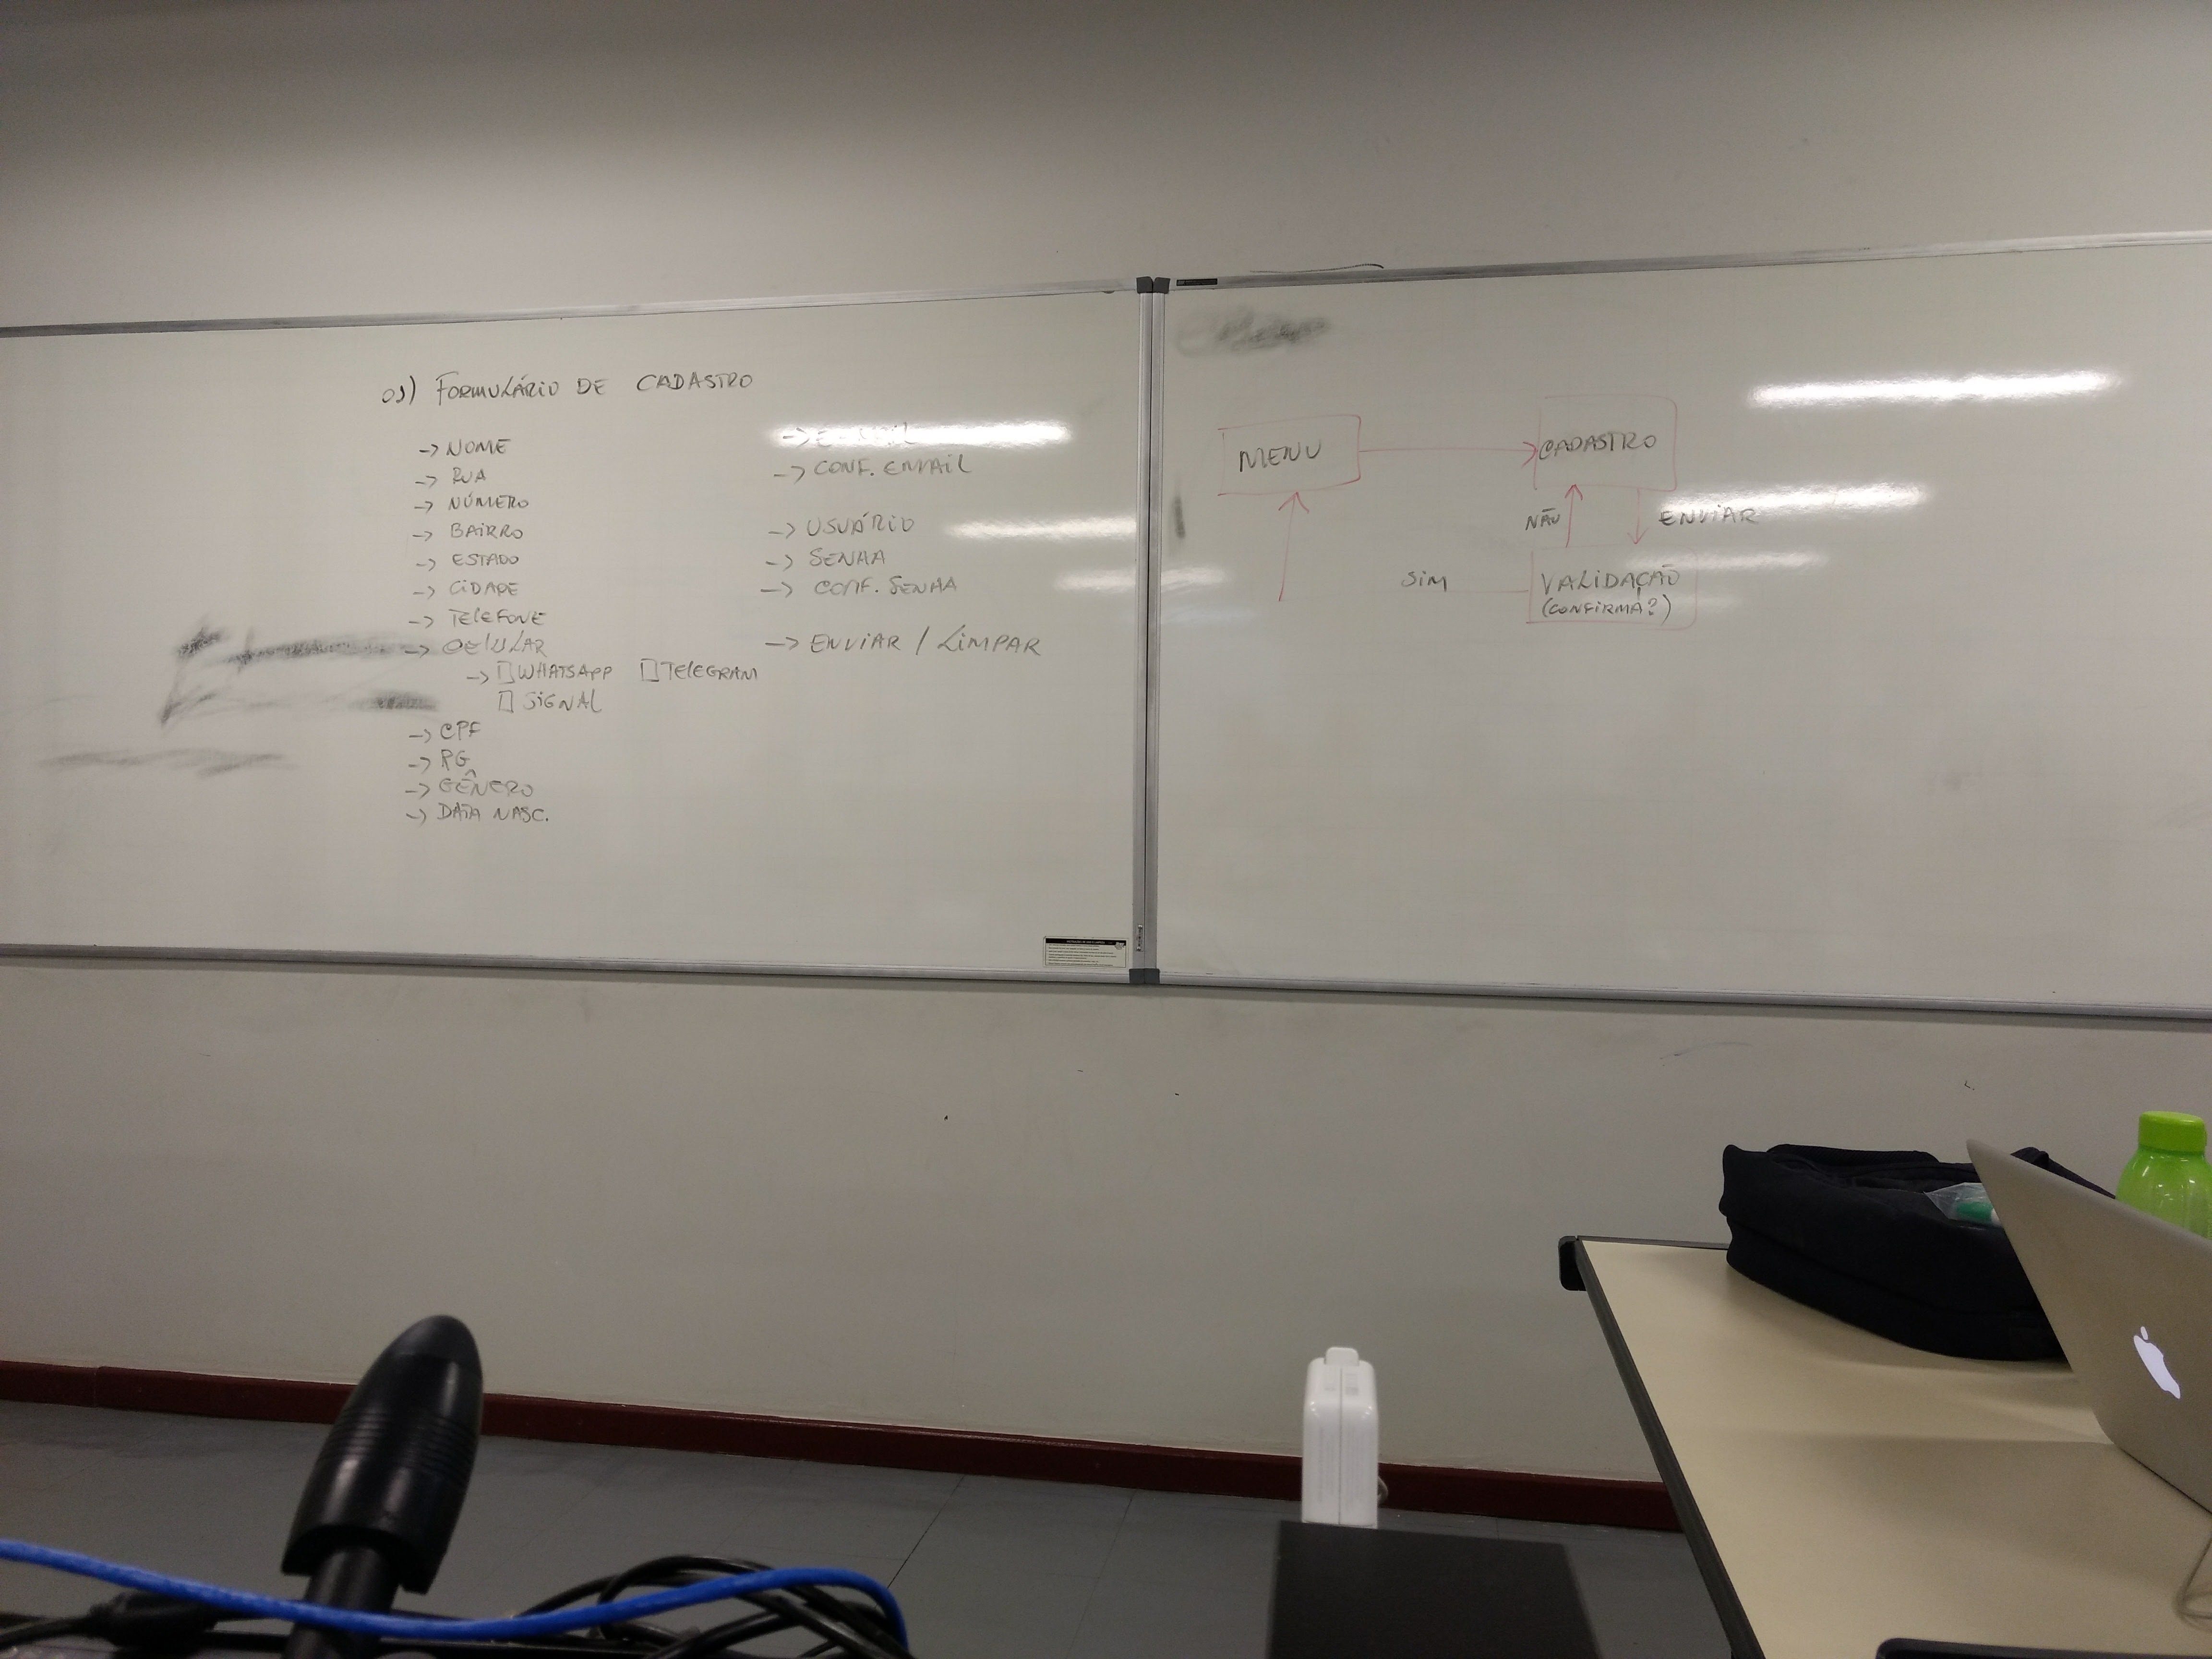 01) FORMULÁRIO DE CADASTRO
-> NOME
-> RUA
-> NÚMERO
-> BAIRRO
-> ESTADO
-> CIDADE
-> TELEFONE
-> CELULAR
-> WHATSAPP TELEGRAM
SIGNAL
-> CPF
-> RG
-> GÊNERO
-> DATA NASC.
-> E-MAIL
-> CONF. EMAIL
-> USUÁRIO
-> SENHA
-> CONF. SENHA
-> ENVIAR / LIMPAR
MENU
CADASTRO
NÃO
ENVIAR
SIM
VALIDAÇÃO
(CONFIRMA?)